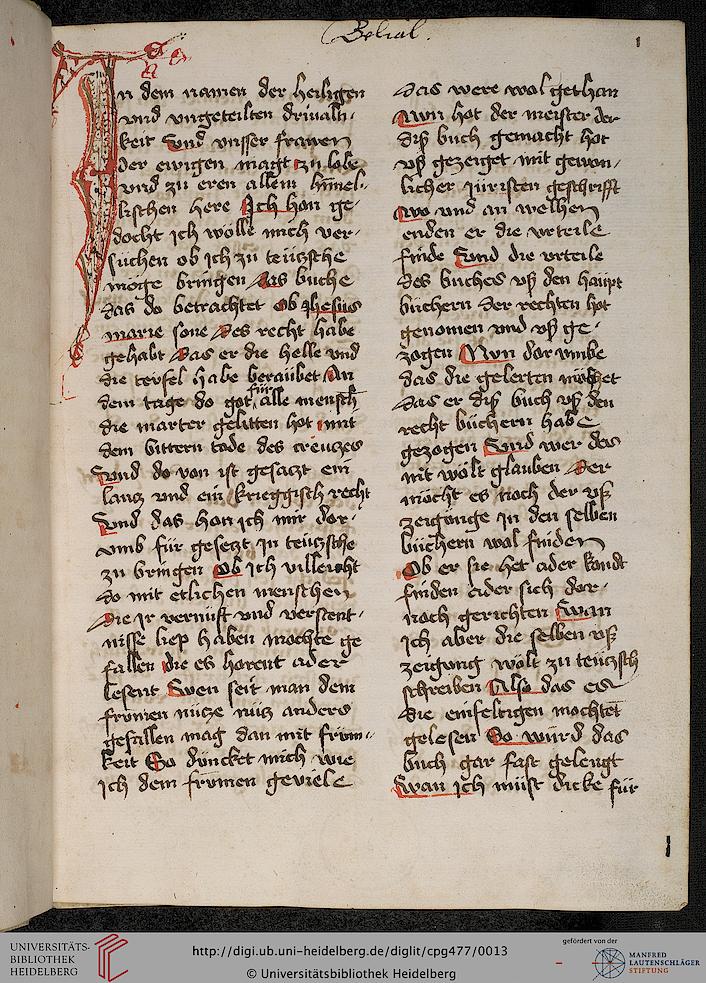 Belial.
1
In dem namen der heiligen
vnd vngeteilten driualti-
keit Vnd vnsser frawen
der ewigen magt zu lobe
vnd zu eren allem himel-
lischen here Ich hon ge-
docht ich wolle mich ver-
suchen ob ich zu teützsche
moige bringen das buche
das do betrachtet Ob Jhesüs
marie sone Des recht habe
gehabt Das er die helle vnd
die teufel habe beraübet An
dem tage do got für alle mensch
die marter gelitten hot mit
dem bittern tode des creutzes
Vnd do von ist gesatzt ein
lang vnd ein krieggisch recht
Vnd das hon ich mir dor-
vmb für gesetzt in teützsche
zu bringen Ob ich villeicht
do mit etlichen menschen
die ir vernüft vnd verstent-
nisse liep haben mochte ge
fallen die es horent ader
lesent Swen seit man dem
frumen nütze nütz anders
gefallen mag dan mit frum-
keit So düncket mich wie
ich dem frumen geviele
das were wol gethan
Nun hot der meister der
diß buch gemacht hot
vß gezeiget mit gewon-
licher Jüristen geschrifft
Wo vnd an welhen
enden er die vrteile
finde Vnd die vrteile
des buches vß den haüpt
büchern der rechten hot
genomen vnd vß ge-
zogen Nun dor vmbe
das die gelerten möchet
das er diß buch vß den
recht büchern habe
gezogen Vnd wer das
nit wölt glauben Der
mocht es noch der vß
zeigünge in den selben
büchern wol finden
Ob er sie het ader kondt
finden ader sich dor-
noch gerichten Swan
ich aber die selben vß
zeigung wölt zu teützsch
schreiben Also das es
die einfeltigen mochtet
gelesen So würd das
buch gar fast gelengt
Swan ich müst dicke für
1
UNIVERSITÄTS-
BIBLIOTHEK
HEIDELBERG
http://digi.ub.uni-heidelberg.de/diglit/cpg477/0013
© Universitätsbibliothek Heidelberg
gefördert von der
MANFRED
LAUTENSCHLÄGER
STIFTUNG